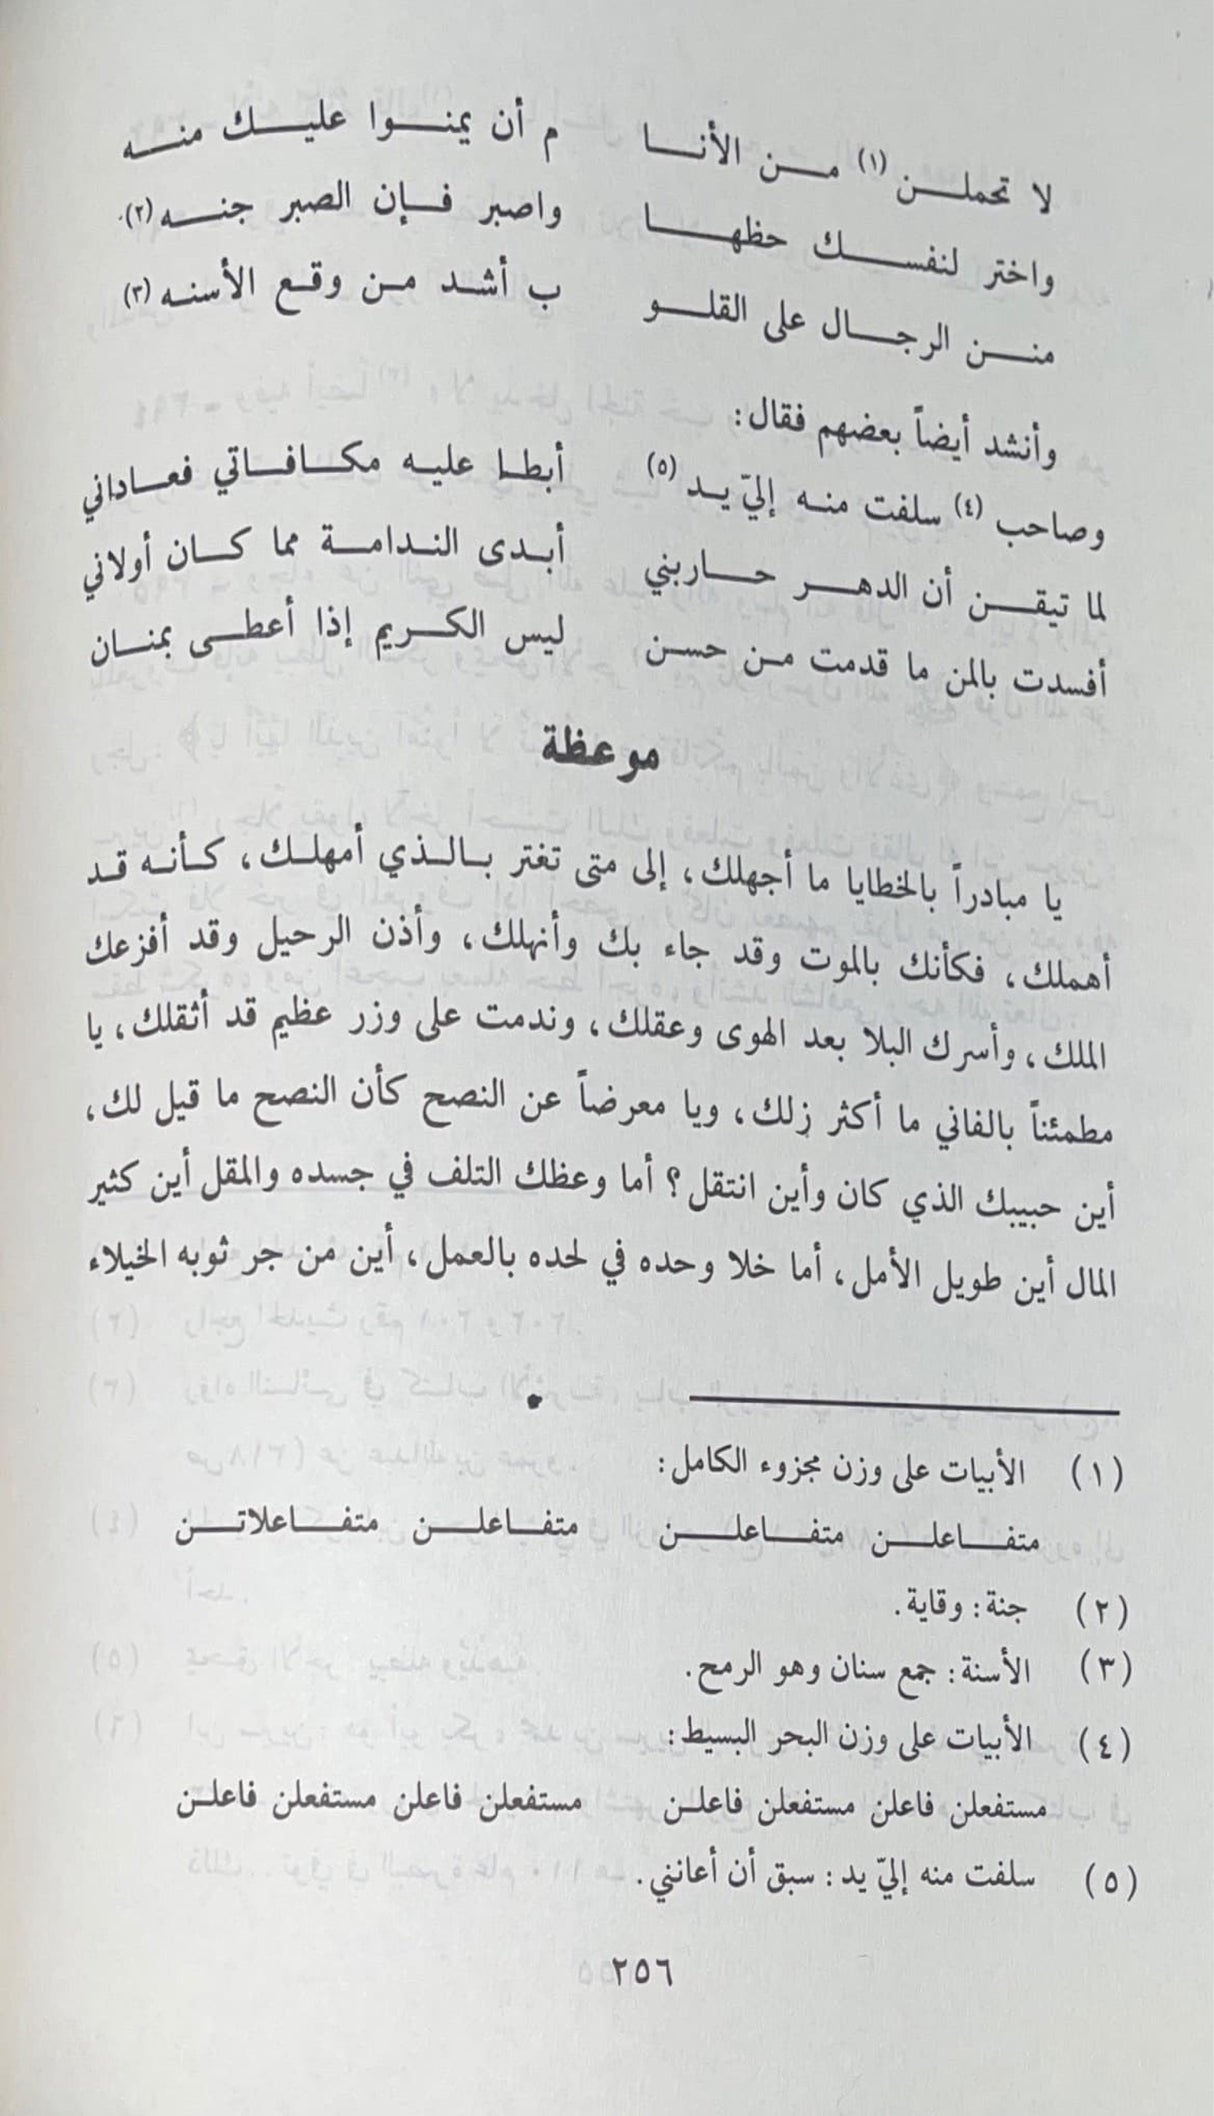 لا تحملن (١) من الأنا م أن يمنوا عليك منه
واختر لنفسك حظها واصبر فإن الصبر جنه (٢).
منن الرجال على القلو ب أشد من وقع الأسنه (٣)
وأنشد أيضاً بعضهم فقال:
وصاحب (٤) سلفت منه إليّ يد (٥) أبطا عليه مكافاتي فعاداني
لما تيقن أن الدهر حاربني أبدى الندامة مما كان أولاني
أفسدت بالمن ما قدمت من حسن ليس الكريم إذا أعطى بمنان
موعظة
يا مبادراً بالخطايا ما أجهلك، إلى متى تغتر بالذي أمهلك، كأنه قد
أهملك، فكأنك بالموت وقد جاء بك وأنهلك، وأذن الرحيل وقد أفزعك
الملك، وأسرك البلا بعد الهوى وعقلك، وندمت على وزر عظيم قد أثقلك، يا
مطمئناً بالفاني ما أكثر زلك، ويا معرضاً عن النصح كأن النصح ما قيل لك،
أين حبيبك الذي كان وأين انتقل؟ أما وعظك التلف في جسده والمقل أين كثير
المال أين طويل الأمل، أما خلا وحده في لحده بالعمل، أين من جر ثوبه الخيلاء
(١) الأبيات على وزن مجزوء الكامل:
متفاعلن متفاعلن متفاعلن متفاعلاتن
(٢) جنة: وقاية.
(٣) الأسنة: جمع سنان وهو الرمح.
(٤) الأبيات على وزن البحر البسيط:
مستفعلن فاعلن مستفعلن فاعلن مستفعلن فاعلن مستفعلن فاعلن
(٥) سلفت منه إليّ يد: سبق أن أعانني.
٢٥٦